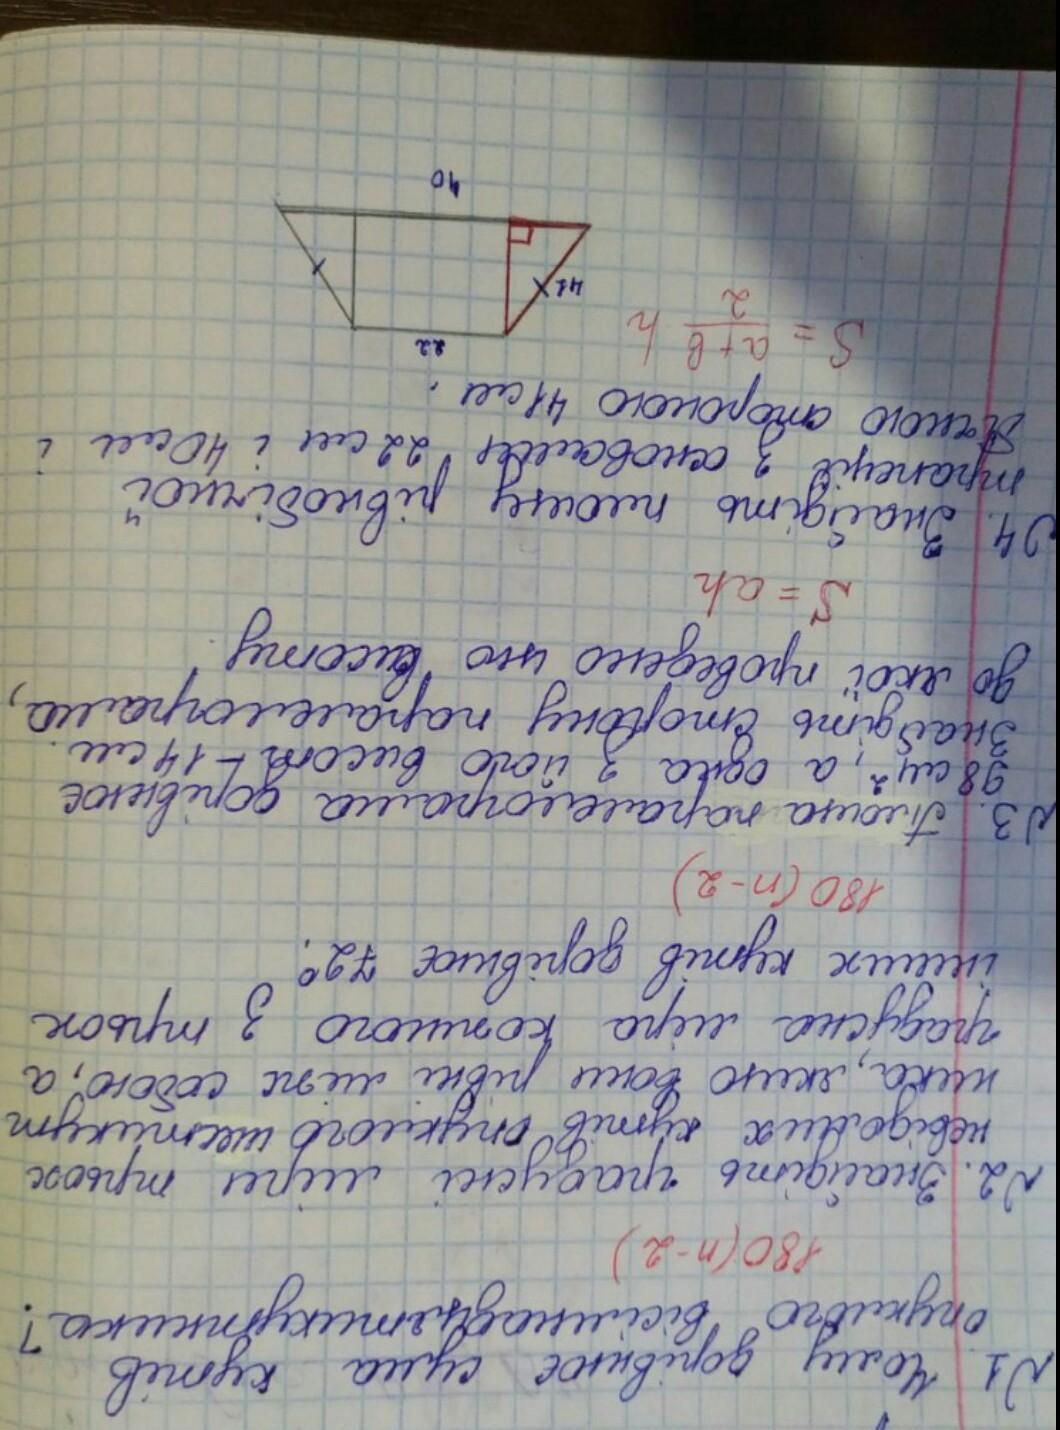 №1 Чому дорівнює сума кутів
опуклого вісімнадцятикутника?
180(n-2)
№2. Знайдіть градусні міри трьох
невідомих кутів опуклого шестикут
ника, якщо вони рівні між собою, а
градусна міра кожного з трьох
інших кутів дорівнює 72°.
180(n-2)
№3. Площа паралелограма дорівнює
98 см², а одна з його висот - 14 см.
Знайдіть сторону паралелограма,
до якої проведено цю висоту.
S = ah
№4. Знайдіть площу рівнобічної
трапеції з основами 22 см і 40 см і
бічною стороною 41 см.
S = a+b/2 h
22
41
40